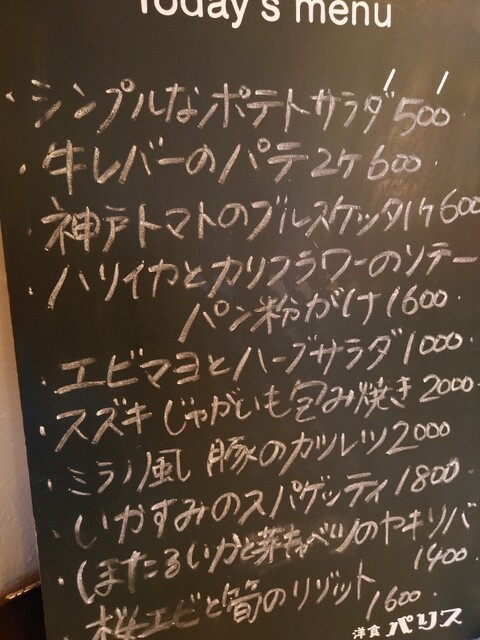 Today's menu
・シンプルなポテトサラダ 500
・牛レバーのパテ 2ケ 600
神戸トマトのブルスケッタ1ケ 600
・ハリイカとカリフラワーのソテー
パン粉がけ 1600
・エビマヨとハーブサラダ 1000
・スズキ じゃがいも包み焼き 2000
・ミラノ風 豚のカツレツ 2000
・いかすみのスパゲッティ 1800
・ほたるいかと芽キャベツのヤキリバ
1400
桜エビと筍のリゾット 1600
洋食 パリス